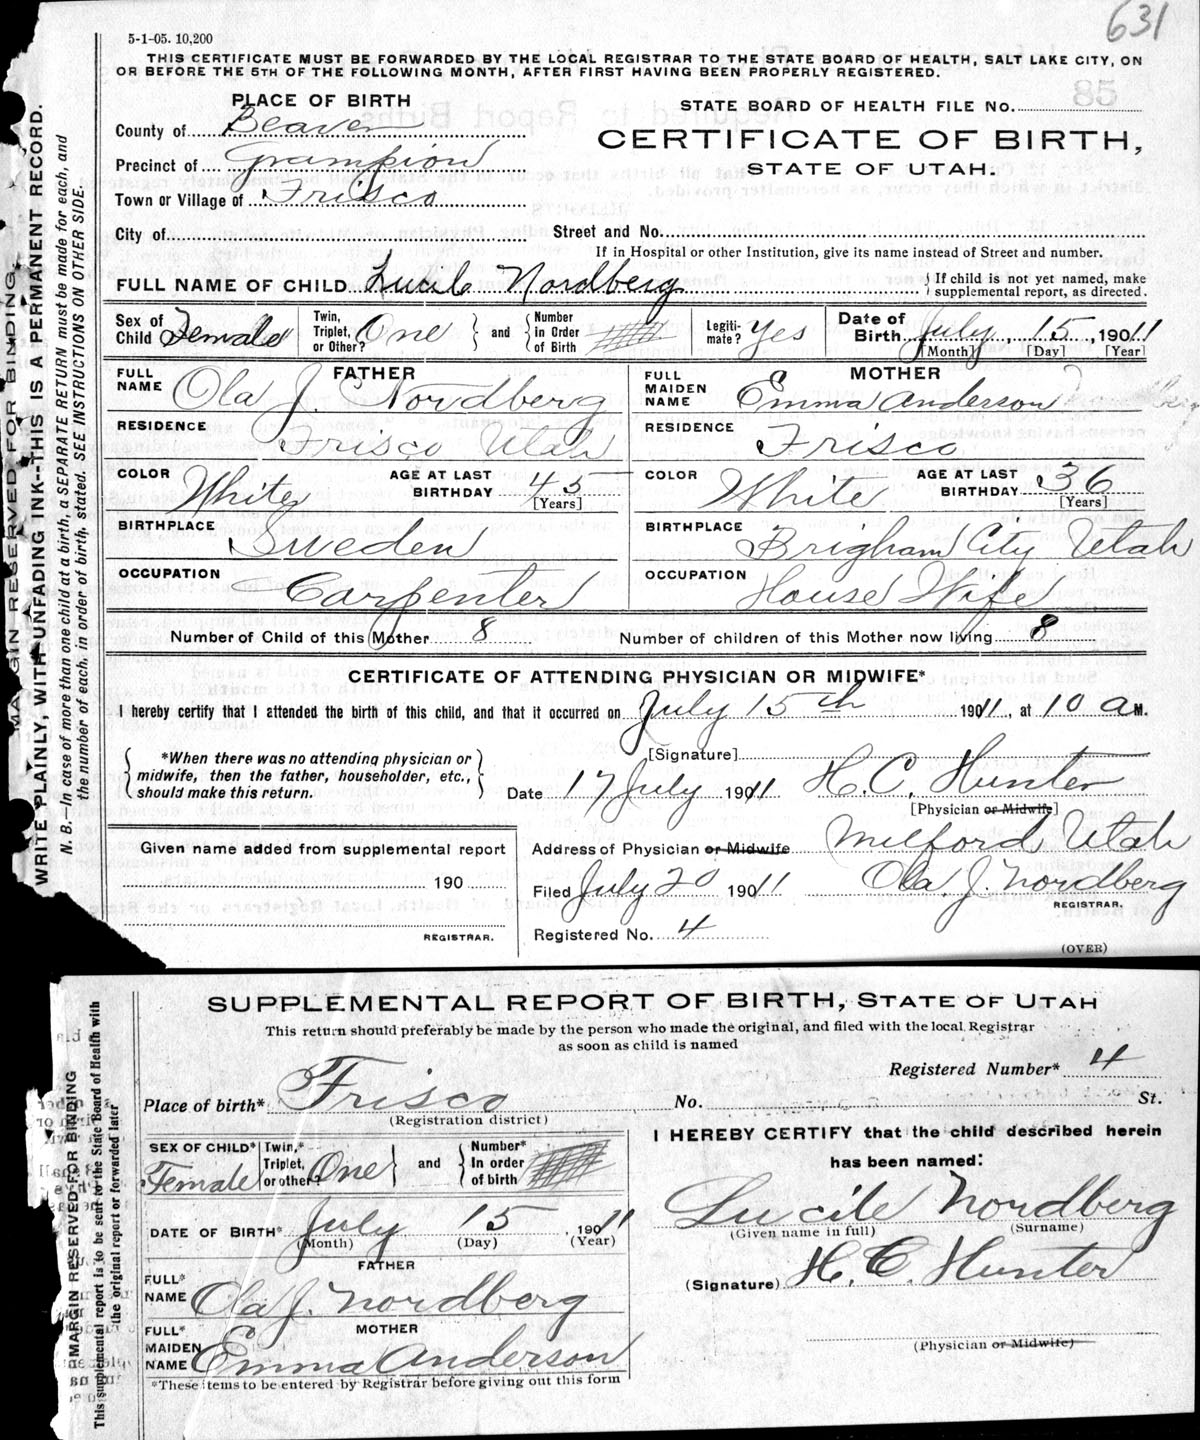 631
5-1-05. 10,200
THIS CERTIFICATE MUST BE FORWARDED BY THE LOCAL REGISTRAR TO THE STATE BOARD OF HEALTH, SALT LAKE CITY, ON
OR BEFORE THE 5TH OF THE FOLLOWING MONTH, AFTER FIRST HAVING BEEN PROPERLY REGISTERED.
PLACE OF BIRTH
STATE BOARD OF HEALTH FILE No. 85
County of Beaver
CERTIFICATE OF BIRTH,
Precinct of Grampion
STATE OF UTAH.
Town or Village of Frisco
City of
Street and No.
If in Hospital or other Institution, give its name instead of Street and number.
FULL NAME OF CHILD Lucile Nordberg
If child is not yet named, make
supplemental report, as directed.
Sex of Child Female
Twin, Triplet, or Other? One
and
Number in Order of Birth
Legiti-mate? Yes
Date of Birth July 15, 1911
[Month] [Day] [Year]
FATHER
FULL NAME Ola J. Nordberg
MOTHER
FULL MAIDEN NAME Emma Anderson
RESIDENCE Frisco Utah
RESIDENCE Frisco
COLOR White
AGE AT LAST BIRTHDAY 45
[Years]
COLOR White
AGE AT LAST BIRTHDAY 36
[Years]
BIRTHPLACE Sweden
BIRTHPLACE Brigham City Utah
OCCUPATION Carpenter
OCCUPATION House Wife
Number of Child of this Mother 8
Number of children of this Mother now living 8
CERTIFICATE OF ATTENDING PHYSICIAN OR MIDWIFE*
I hereby certify that I attended the birth of this child, and that it occurred on July 15th 1911, at 10 a M.
*When there was no attending physician or
midwife, then the father, householder, etc.,
should make this return.
[Signature]
Date 17 July 1911 H. C. Hunter
[Physician or Midwife]
Address of Physician or Midwife Milford Utah
Given name added from supplemental report
190
REGISTRAR.
Filed July 20 1911 Ola. J. Nordberg
REGISTRAR.
Registered No. 4
(OVER)
MARGIN RESERVED FOR BINDING
WRITE PLAINLY, WITH UNFADING INK--THIS IS A PERMANENT RECORD.
N. B.—In case of more than one child at a birth, a SEPARATE RETURN must be made for each, and
the number of each, in order of birth, stated. SEE INSTRUCTIONS ON OTHER SIDE.
SUPPLEMENTAL REPORT OF BIRTH, STATE OF UTAH
This return should preferably be made by the person who made the original, and filed with the local Registrar
as soon as child is named
Registered Number* 4
Place of birth* Frisco No. St.
(Registration district)
SEX OF CHILD* Female
Twin,* Triplet, or other? One
and
Number* In order of birth
DATE OF BIRTH* July 15, 1911
(Month) (Day) (Year)
FATHER
FULL* NAME Ola J. Nordberg
MOTHER
FULL* MAIDEN NAME Emma Anderson
*These items to be entered by Registrar before giving out this form
I HEREBY CERTIFY that the child described herein
has been named:
Lucile Nordberg
(Given name in full) (Surname)
(Signature) H. C. Hunter
(Physician or Midwife)
MARGIN RESERVED FOR BINDING
This supplemental report is to be sent to the State Board of Health with
the original report or forwarded later